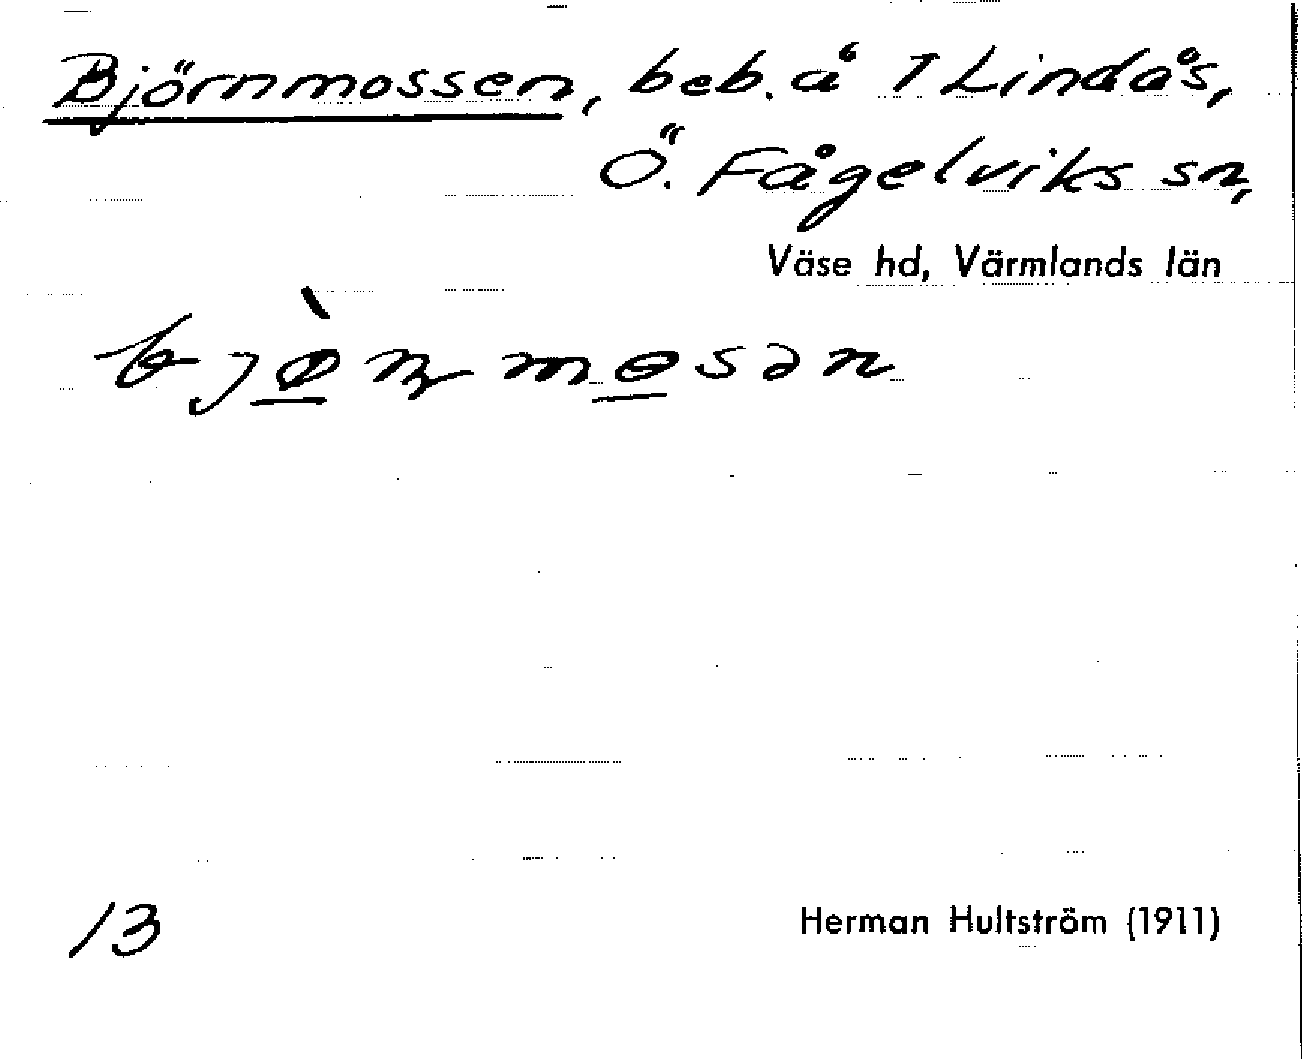 Björnmossen, beb. å 1 Lindås,
Ö. Fågelviks sn,
Väse hd, Värmlands län
13
Herman Hultström (1911)